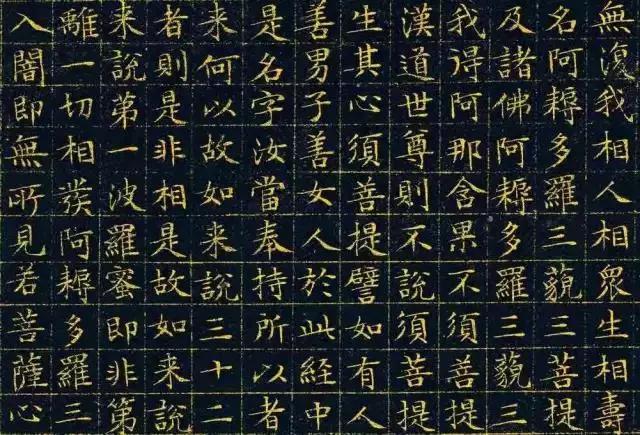 無復我相人相眾生相壽
名阿耨多羅三藐三菩提
及諸佛阿耨多羅三藐三
我得阿那含果不須菩提
漢道世尊則不說須菩提
生其心須菩提譬如有人
善男子善女人於此経中
是名字汝當奉持所以者
来何以故如来說三十二
者則是非相是故如来說
来說第一波羅蜜即非第
離一切相發阿耨多羅三
入闇即無所見若菩薩心